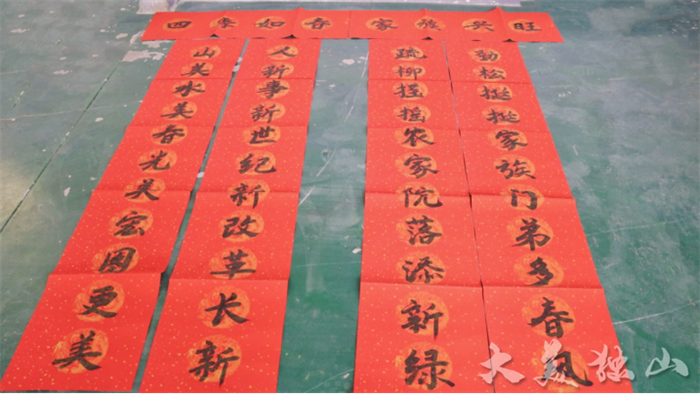 四季如春 家族兴旺
山美水美春光美宏图更美
人新事新世纪新改革长新
疏柳摇摇农家院落添新绿
劲松挺挺家族门弟多春风
大美独山